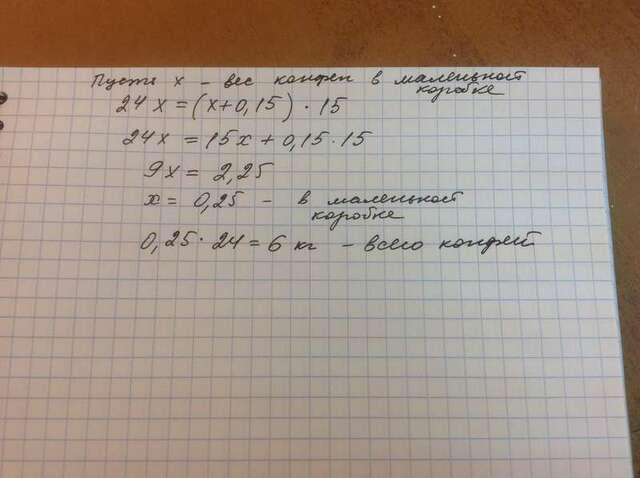 Пусть x - вес конфет в маленькой
коробке
24x = (x+0,15) · 15
24x = 15x + 0,15 · 15
9x = 2,25
x = 0,25 - в маленькой
коробке
0,25 · 24 = 6 кг - всего конфет